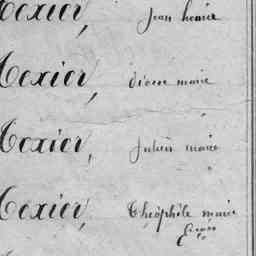 Texier, Jean marie
Texier, Pierre marie
Texier, Julien marie
Texier, Théophile marie